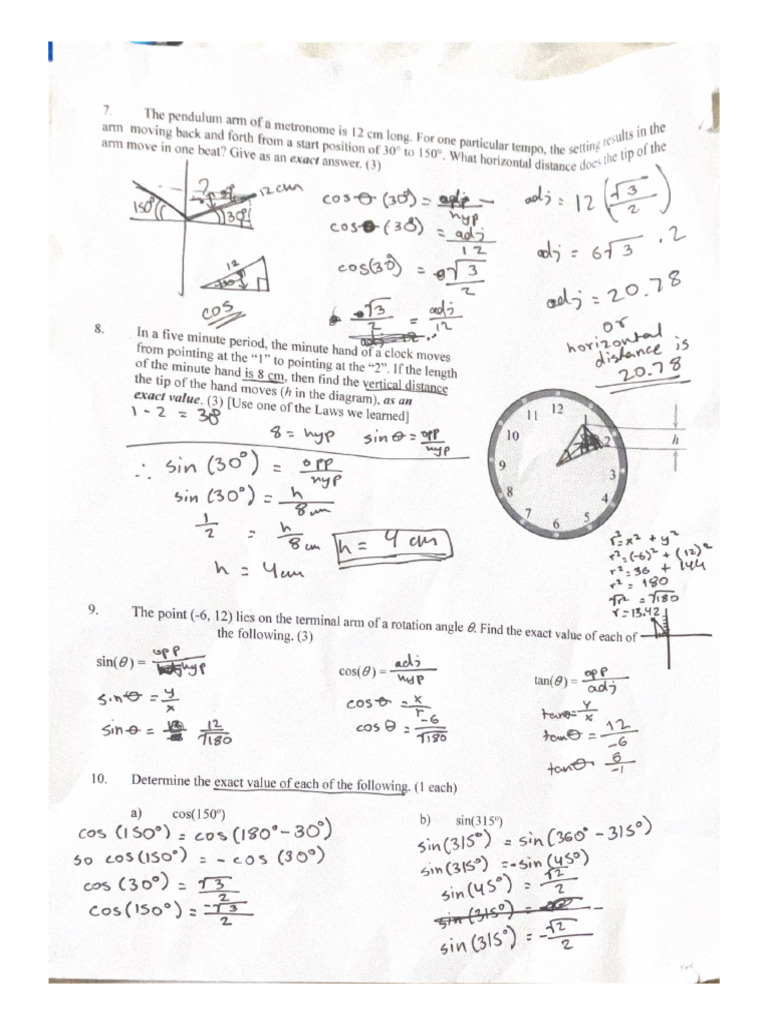 7. The pendulum arm of a metronome is 12 cm long. For one particular tempo, the setting results in the
arm moving back and forth from a start position of 30° to 150°. What horizontal distance does the tip of the
arm move in one beat? Give as an exact answer. (3)
150°
?
12 cm
30°
12
30°
cos
cos θ (30°) = opp
hyp
cos θ (30°) = adj
12
cos(30°) = √3
2
√3 = adj
2 12
adj = 12 (√3
2)
adj = 6√3 . 2
adj = 20.78
or
horizontal
distance is
20.78
8. In a five minute period, the minute hand of a clock moves
from pointing at the “1” to pointing at the “2”. If the length
of the minute hand is 8 cm, then find the vertical distance
the tip of the hand moves (h in the diagram), as an
exact value. (3) [Use one of the Laws we learned]
1 - 2 = 30°
8 = hyp sin θ = opp
hyp
∴ sin (30°) = opp
hyp
sin (30°) = h
8 cm
1 = h
2 8 cm
h = 4 cm
h = 4 cm
12
11
1
10
2
9
3
8
4
7
5
6
h
r² = x² + y²
r² = (-6)² + (12)²
r² = 36 + 144
r² = 180
√r² = √180
r = 13.42
9. The point (-6, 12) lies on the terminal arm of a rotation angle θ. Find the exact value of each of
the following. (3)
sin(θ) = opp
hyp
sinθ = y
x
sinθ = 12
√180
cos(θ) = adj
hyp
cosθ = x
r
cosθ = -6
√180
tan(θ) = opp
adj
tanθ = y
x
tanθ = 12
-6
tanθ 6
-1
10. Determine the exact value of each of the following. (1 each)
a) cos(150°)
cos (150°) = cos (180° - 30°)
so cos (150°) = - cos (30°)
cos (30°) = √3
2
cos (150°) = -√3
2
b) sin(315°)
sin(315°) = sin(360° - 315°)
sin(315°) = -sin(45°)
sin(45°) = √2
2
sin(315°) =
sin(315°) = -√2
2